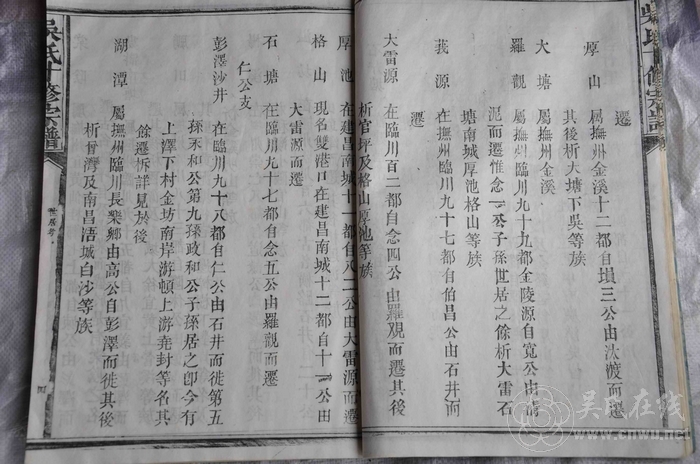 遷
厚山 屬撫州金溪十二都自塤三公由汝渡而遷
其後析大塘下吳等族
大塘 屬撫州金溪
羅觀 屬撫州臨川九十九都金陵源自寬公由
泥而遷惟念一公子孫世居之餘析大雷石
塘南城厚池格山等族
莪源 在撫州臨川九十七都自伯昌公由石井而
遷
大雷源 在臨川百二都自念四公由羅觀而遷其後
析官坪及格山厚池等族
厚池 在建昌南城十一都自八二公由大雷源而遷
格山 現名雙港口在建昌南城十二都自十一公由
大雷源而遷
石塘 在臨川九十七都自念五公由羅觀而遷
仁公支
彭澤沙井 在臨川九十八都自仁公由石井而徙第五
孫永和公第九孫政和公子孫居之卽今有
上澤下村金坊南岸游頓上游堯封等名其
餘遷析詳見於後
湖潭 屬撫州臨川長樂鄉由高公自彭澤而徙其後
析曾灣及南昌浯城白沙等族
吳氏十修宗譜
吳氏在线
www.cnwu.net